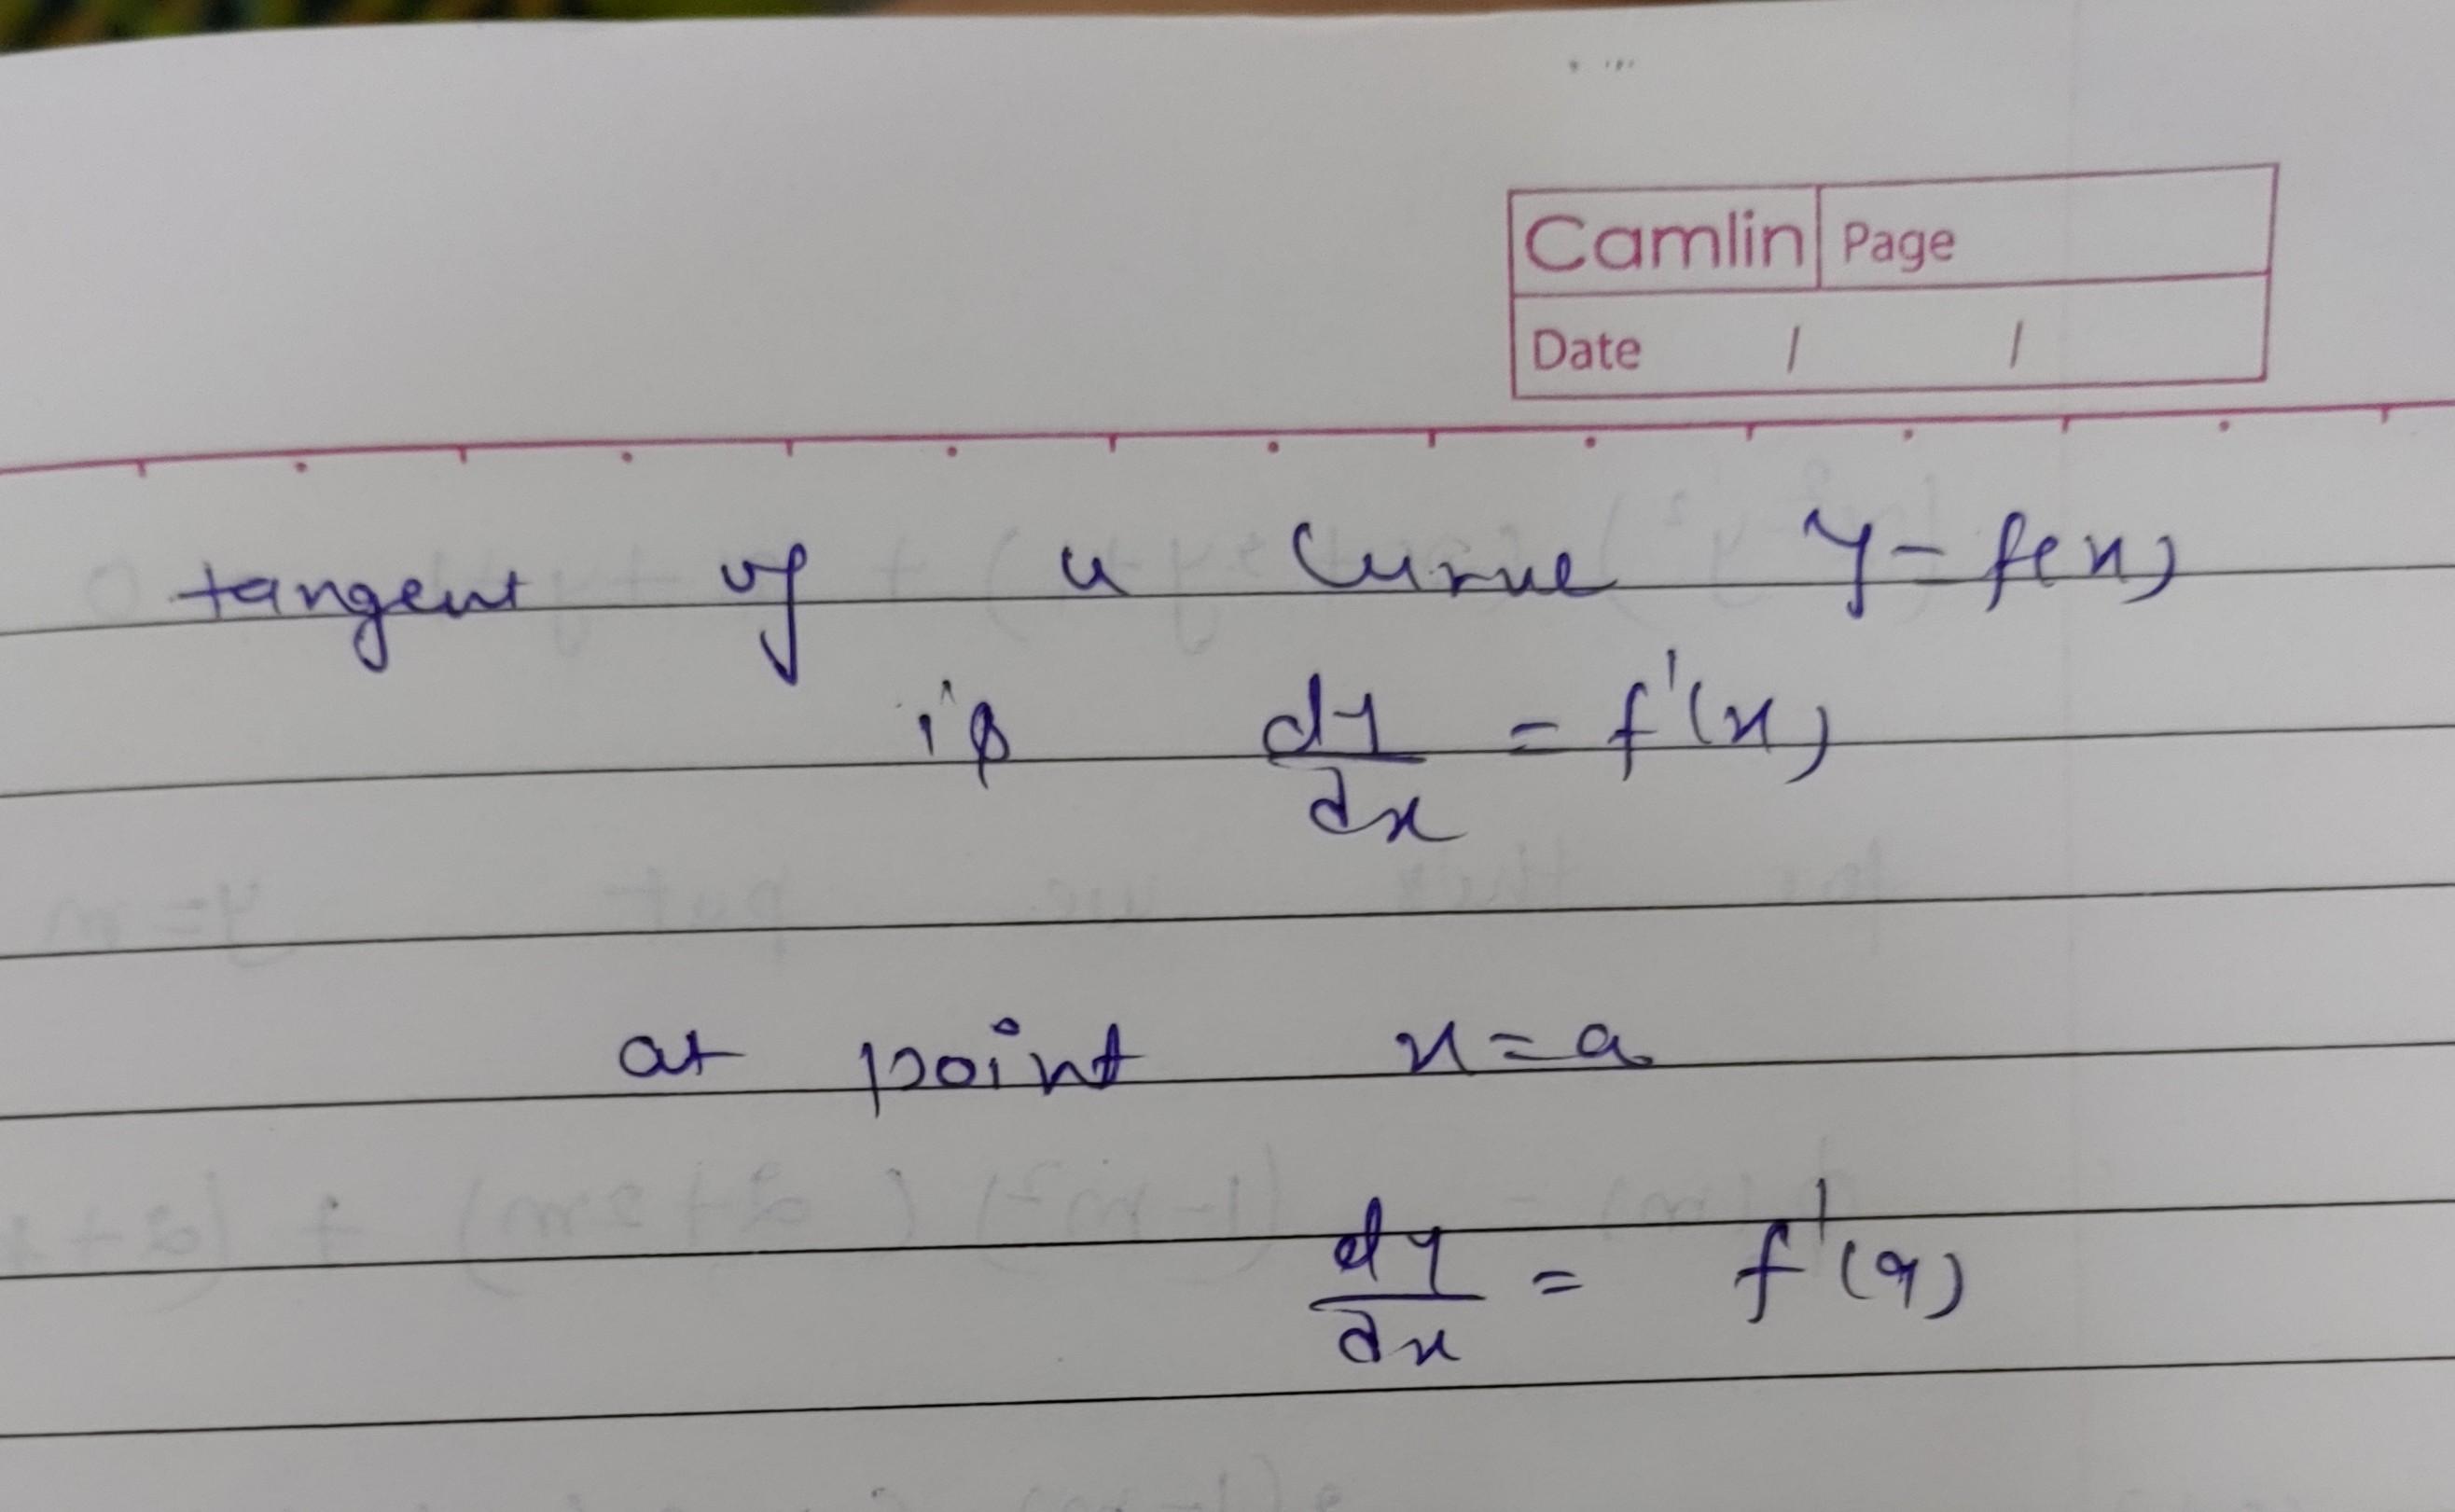 Camlin Page
Date / /
tangent of a curve y = f(x)
is dy/dx = f'(x)
at point x = a
dy/dx = f'(a)